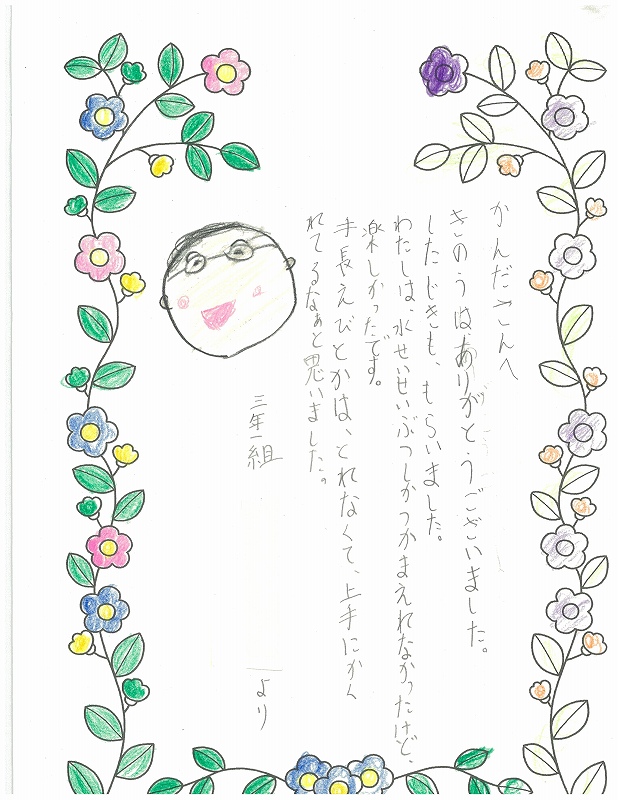 かんださんへ
きのうは、ありがとうございました。
したじきも、もらいました。
わたしは、水せいせいぶつしかつかまえれなかったけど、
楽しかったです。
手長えびとかは、とれなくて、上手にかく
れてるなぁと思いました。
三年一組
より